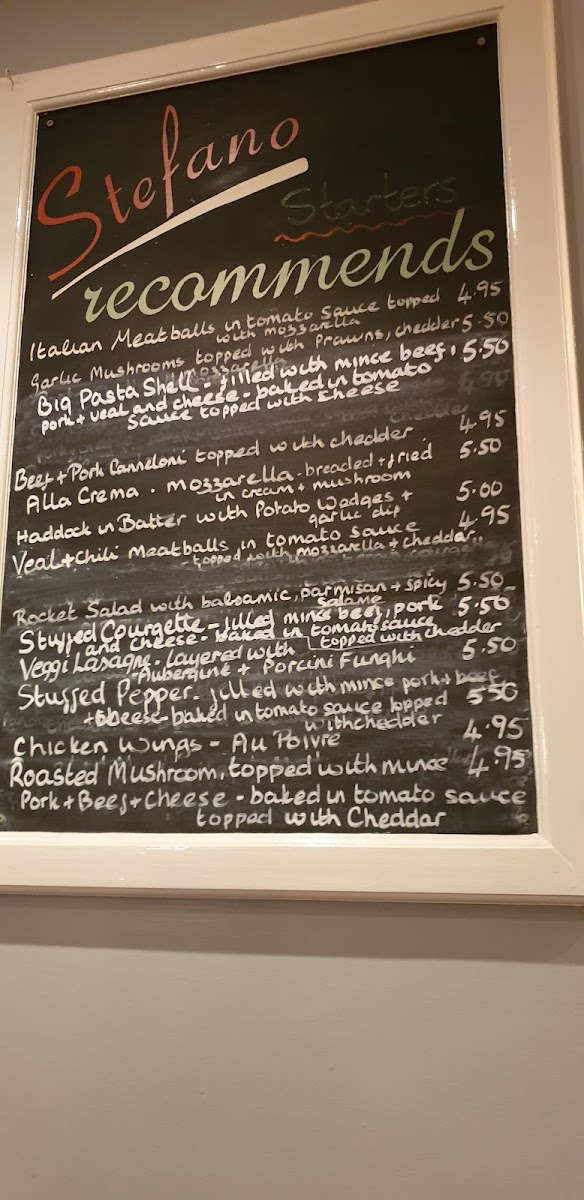 Stefano
Starters
recommends
Italian Meatballs in tomato sauce topped 4.95
with mozzarella
Garlic Mushrooms topped with Prawns, chedder 5.50
mozzarella
Big Pasta Shell - filled with mince beef, 5.50
pork + veal and cheese - baked in tomato
sauce topped with cheese
Beef + Pork Canneloni topped with chedder 4.95
Alla Crema . mozzarella - breaded + fried 5.50
in cream + mushroom
Haddock in Batter with Potato Wadges + 5.00
garlic dip
Veal + Chili meatballs in tomato sauce 4.95
- topped with mozzarella + chedder
Rocket Salad with balsamic, parmisan + spicy 5.50
Salame
Stuffed Courgette - filled mince beef, pork 5.50
and cheese - baked in tomato sauce
topped with chedder
Veggi Lasagne - layered with 5.50
- Aubergine + Porcini Funghi
Stuffed Pepper - filled with mince pork + beef
+ cheese - baked in tomato sauce topped 5.50
with chedder
Chicken Wings - Au Poivre 4.95
Roasted Mushroom, topped with mince 4.95
Pork + Beef + Cheese - baked in tomato sauce
topped with Cheddar